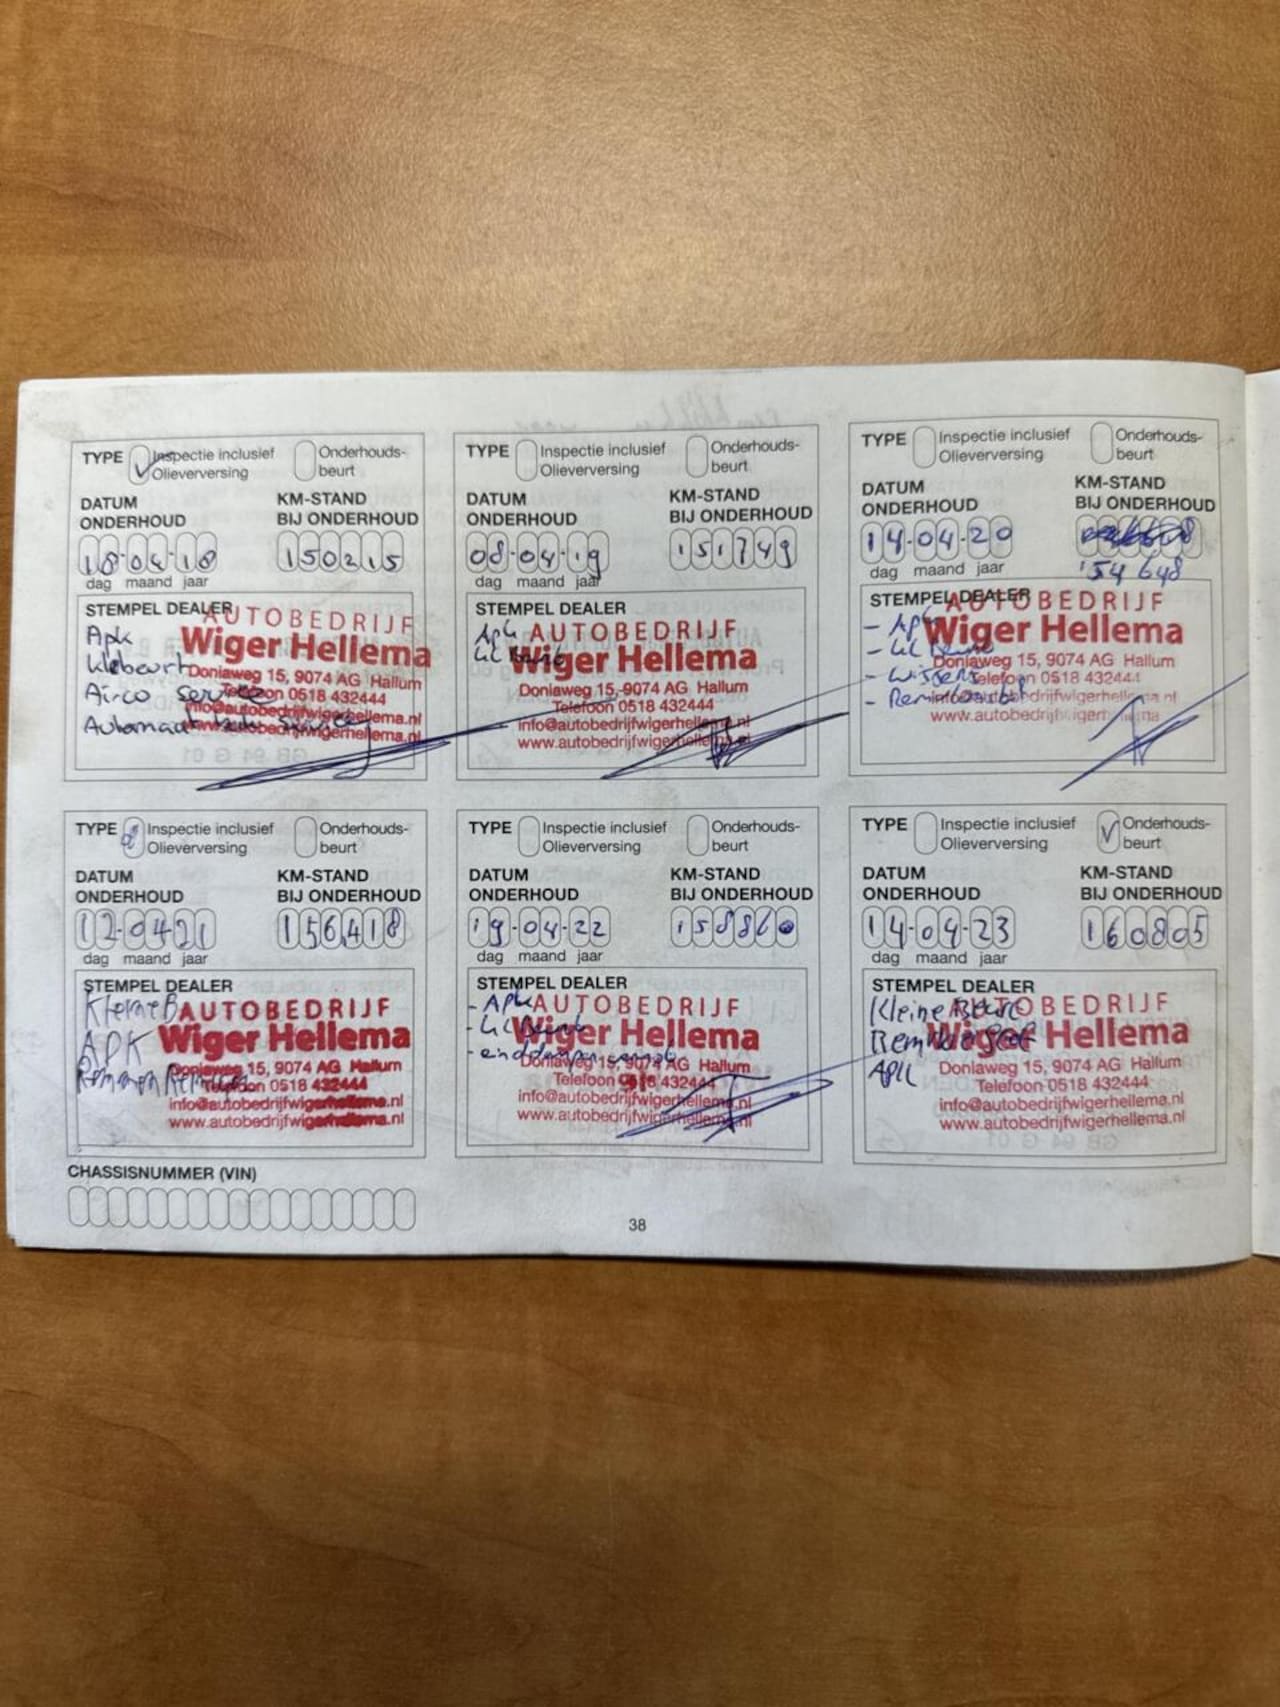 TYPE Inspectie inclusief Olieverversing Onderhouds-beurt
DATUM ONDERHOUD
KM-STAND BIJ ONDERHOUD
18-04-18
150215
dag maand jaar
STEMPEL DEALER
AUTOBEDRIJF
Wiger Hellema
Doniaweg 15, 9074 AG Hallum
Telefoon 0518 432444
info@autobedrijfwigerhellema.nl
www.autobedrijfwigerhellema.nl
Apk
klebeurt
Airco service
TYPE Inspectie inclusief Olieverversing Onderhouds-beurt
DATUM ONDERHOUD
KM-STAND BIJ ONDERHOUD
08-04-19
151749
dag maand jaar
STEMPEL DEALER
AUTOBEDRIJF
Wiger Hellema
Doniaweg 15, 9074 AG Hallum
Telefoon 0518 432444
info@autobedrijfwigerhellema.nl
www.autobedrijfwigerhellema.nl
Apk
TYPE Inspectie inclusief Olieverversing Onderhouds-beurt
DATUM ONDERHOUD
KM-STAND BIJ ONDERHOUD
14-04-20
154648
dag maand jaar
STEMPEL DEALER
AUTOBEDRIJF
Wiger Hellema
Doniaweg 15, 9074 AG Hallum
Telefoon 0518 432444
info@autobedrijfwigerhellema.nl
www.autobedrijfwigerhellema.nl
- Apk
- wissers
TYPE Inspectie inclusief Olieverversing Onderhouds-beurt
DATUM ONDERHOUD
KM-STAND BIJ ONDERHOUD
12-0421
156418
dag maand jaar
STEMPEL DEALER
AUTOBEDRIJF
Wiger Hellema
Doniaweg 15, 9074 AG Hallum
Telefoon 0518 432444
info@autobedrijfwigerhellema.nl
www.autobedrijfwigerhellema.nl
Kleine B
APK
TYPE Inspectie inclusief Olieverversing Onderhouds-beurt
DATUM ONDERHOUD
KM-STAND BIJ ONDERHOUD
19-04-22
158860
dag maand jaar
STEMPEL DEALER
AUTOBEDRIJF
Wiger Hellema
Doniaweg 15, 9074 AG Hallum
Telefoon 0518 432444
info@autobedrijfwigerhellema.nl
www.autobedrijfwigerhellema.nl
- Apk
TYPE Inspectie inclusief Olieverversing Onderhouds-beurt
DATUM ONDERHOUD
KM-STAND BIJ ONDERHOUD
14-04-23
160805
dag maand jaar
STEMPEL DEALER
AUTOBEDRIJF
Wiger Hellema
Doniaweg 15, 9074 AG Hallum
Telefoon 0518 432444
info@autobedrijfwigerhellema.nl
www.autobedrijfwigerhellema.nl
Kleine Beurt
APK
CHASSISNUMMER (VIN)
38